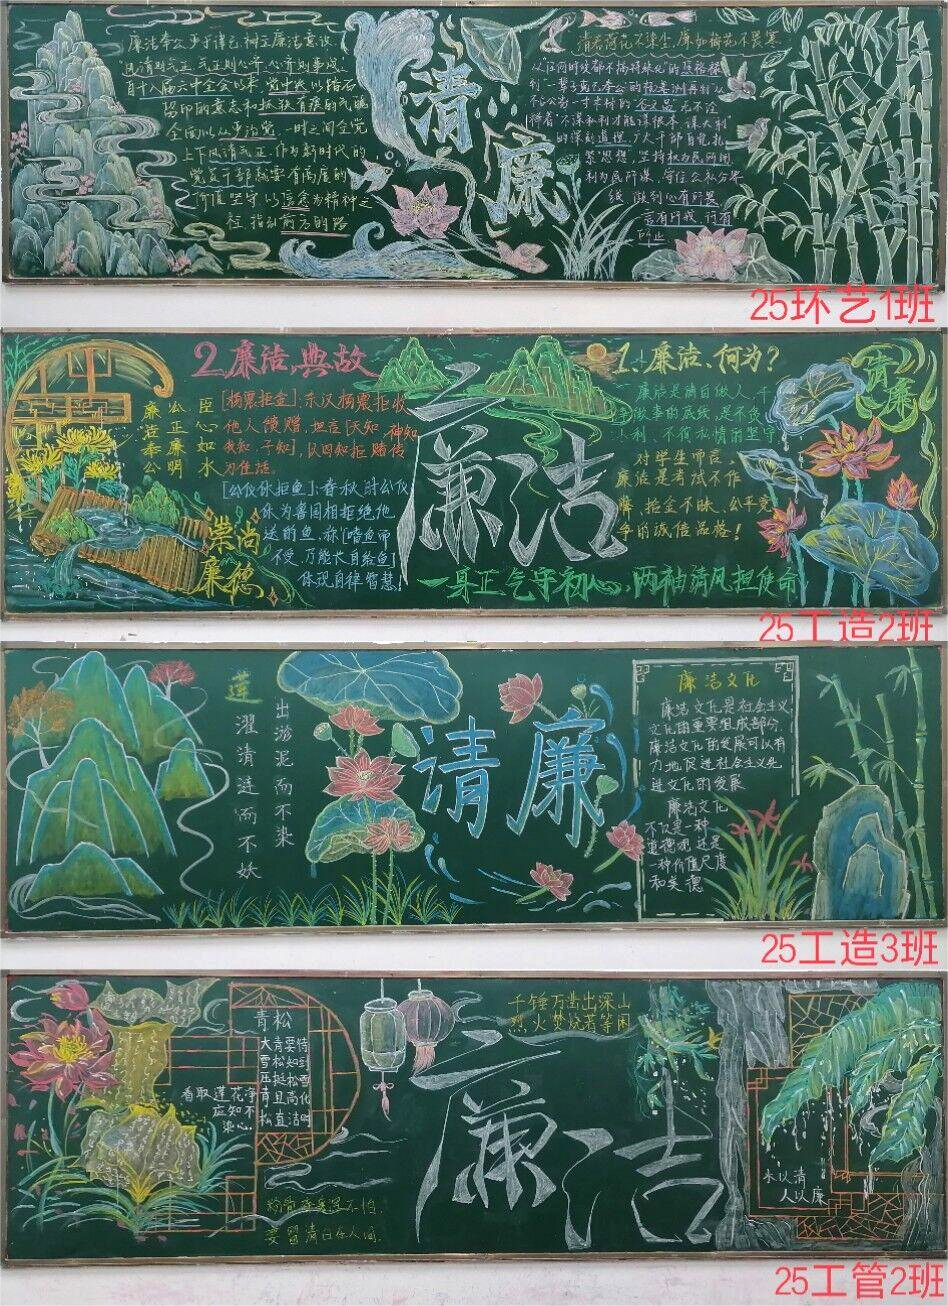 廉洁奉公 步于律己 树立廉洁意识
民清则气正 气正则心平 心齐则事成
自十八届六中全会以来 党中央以踏石
留印的意志和抓铁有痕的气魄
全面从严治党 一时之间全党
上下风清气正 作为新时代的
党员干部就要有高度的
价值坚守 以信念为精神之
柱 指引前方的路
清廉
清若荷花不染尘 廉如梅花不畏寒
利为民所谋
言有所戒 行有
所止
25环艺1班
2.廉洁典故
臣心如水
公正廉明
廉洁奉公
[杨震拒金]:东汉杨震拒收
他人馈赠,坦言[天知 神知
我知 子知],以四知拒贿传
为佳话。
[公仪休拒鱼]:春秋时公仪
休为鲁国相拒绝他
送的鱼,称[嗜鱼而
不受,方能长自给鱼]
体现自律智慧!
崇尚
廉德
廉洁
1.廉洁,何为?
廉洁是清白做人、干
净做事的底线,是不贪
不利、不徇私情的坚守
对学生而言,
廉洁是考试不作
弊、拾金不昧、公平竞
争的诚信品格!
清廉
一身正气守初心,两袖清风担使命
25工造2班
莲
出淤泥而不染
濯清涟而不妖
清廉
廉洁文化
廉洁文化是社会主义
文化的重要组成部分
廉洁文化的发展可以有
力地促进社会主义先
进文化的发展
廉洁文化
不仅是一种
道德观 还是
一种价值尺度
和美德
25工造3班
青松
大雪压青松
青松挺且直
要知松高洁
待到雪化时
看取莲花净
应知不染心
粉骨碎身浑不怕,
要留清白在人间。
廉洁
千锤万凿出深山
烈火焚烧若等闲
水以清
人以廉
25工管2班